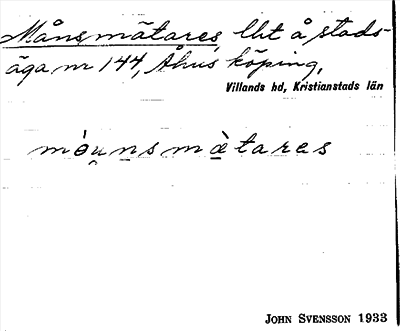 Månsmätares, lht å stads-
äga nr 144, Åhus köping,
Villands hd, Kristianstads län
mòu̯nsmæ̀tares
JOHN SVENSSON 1933